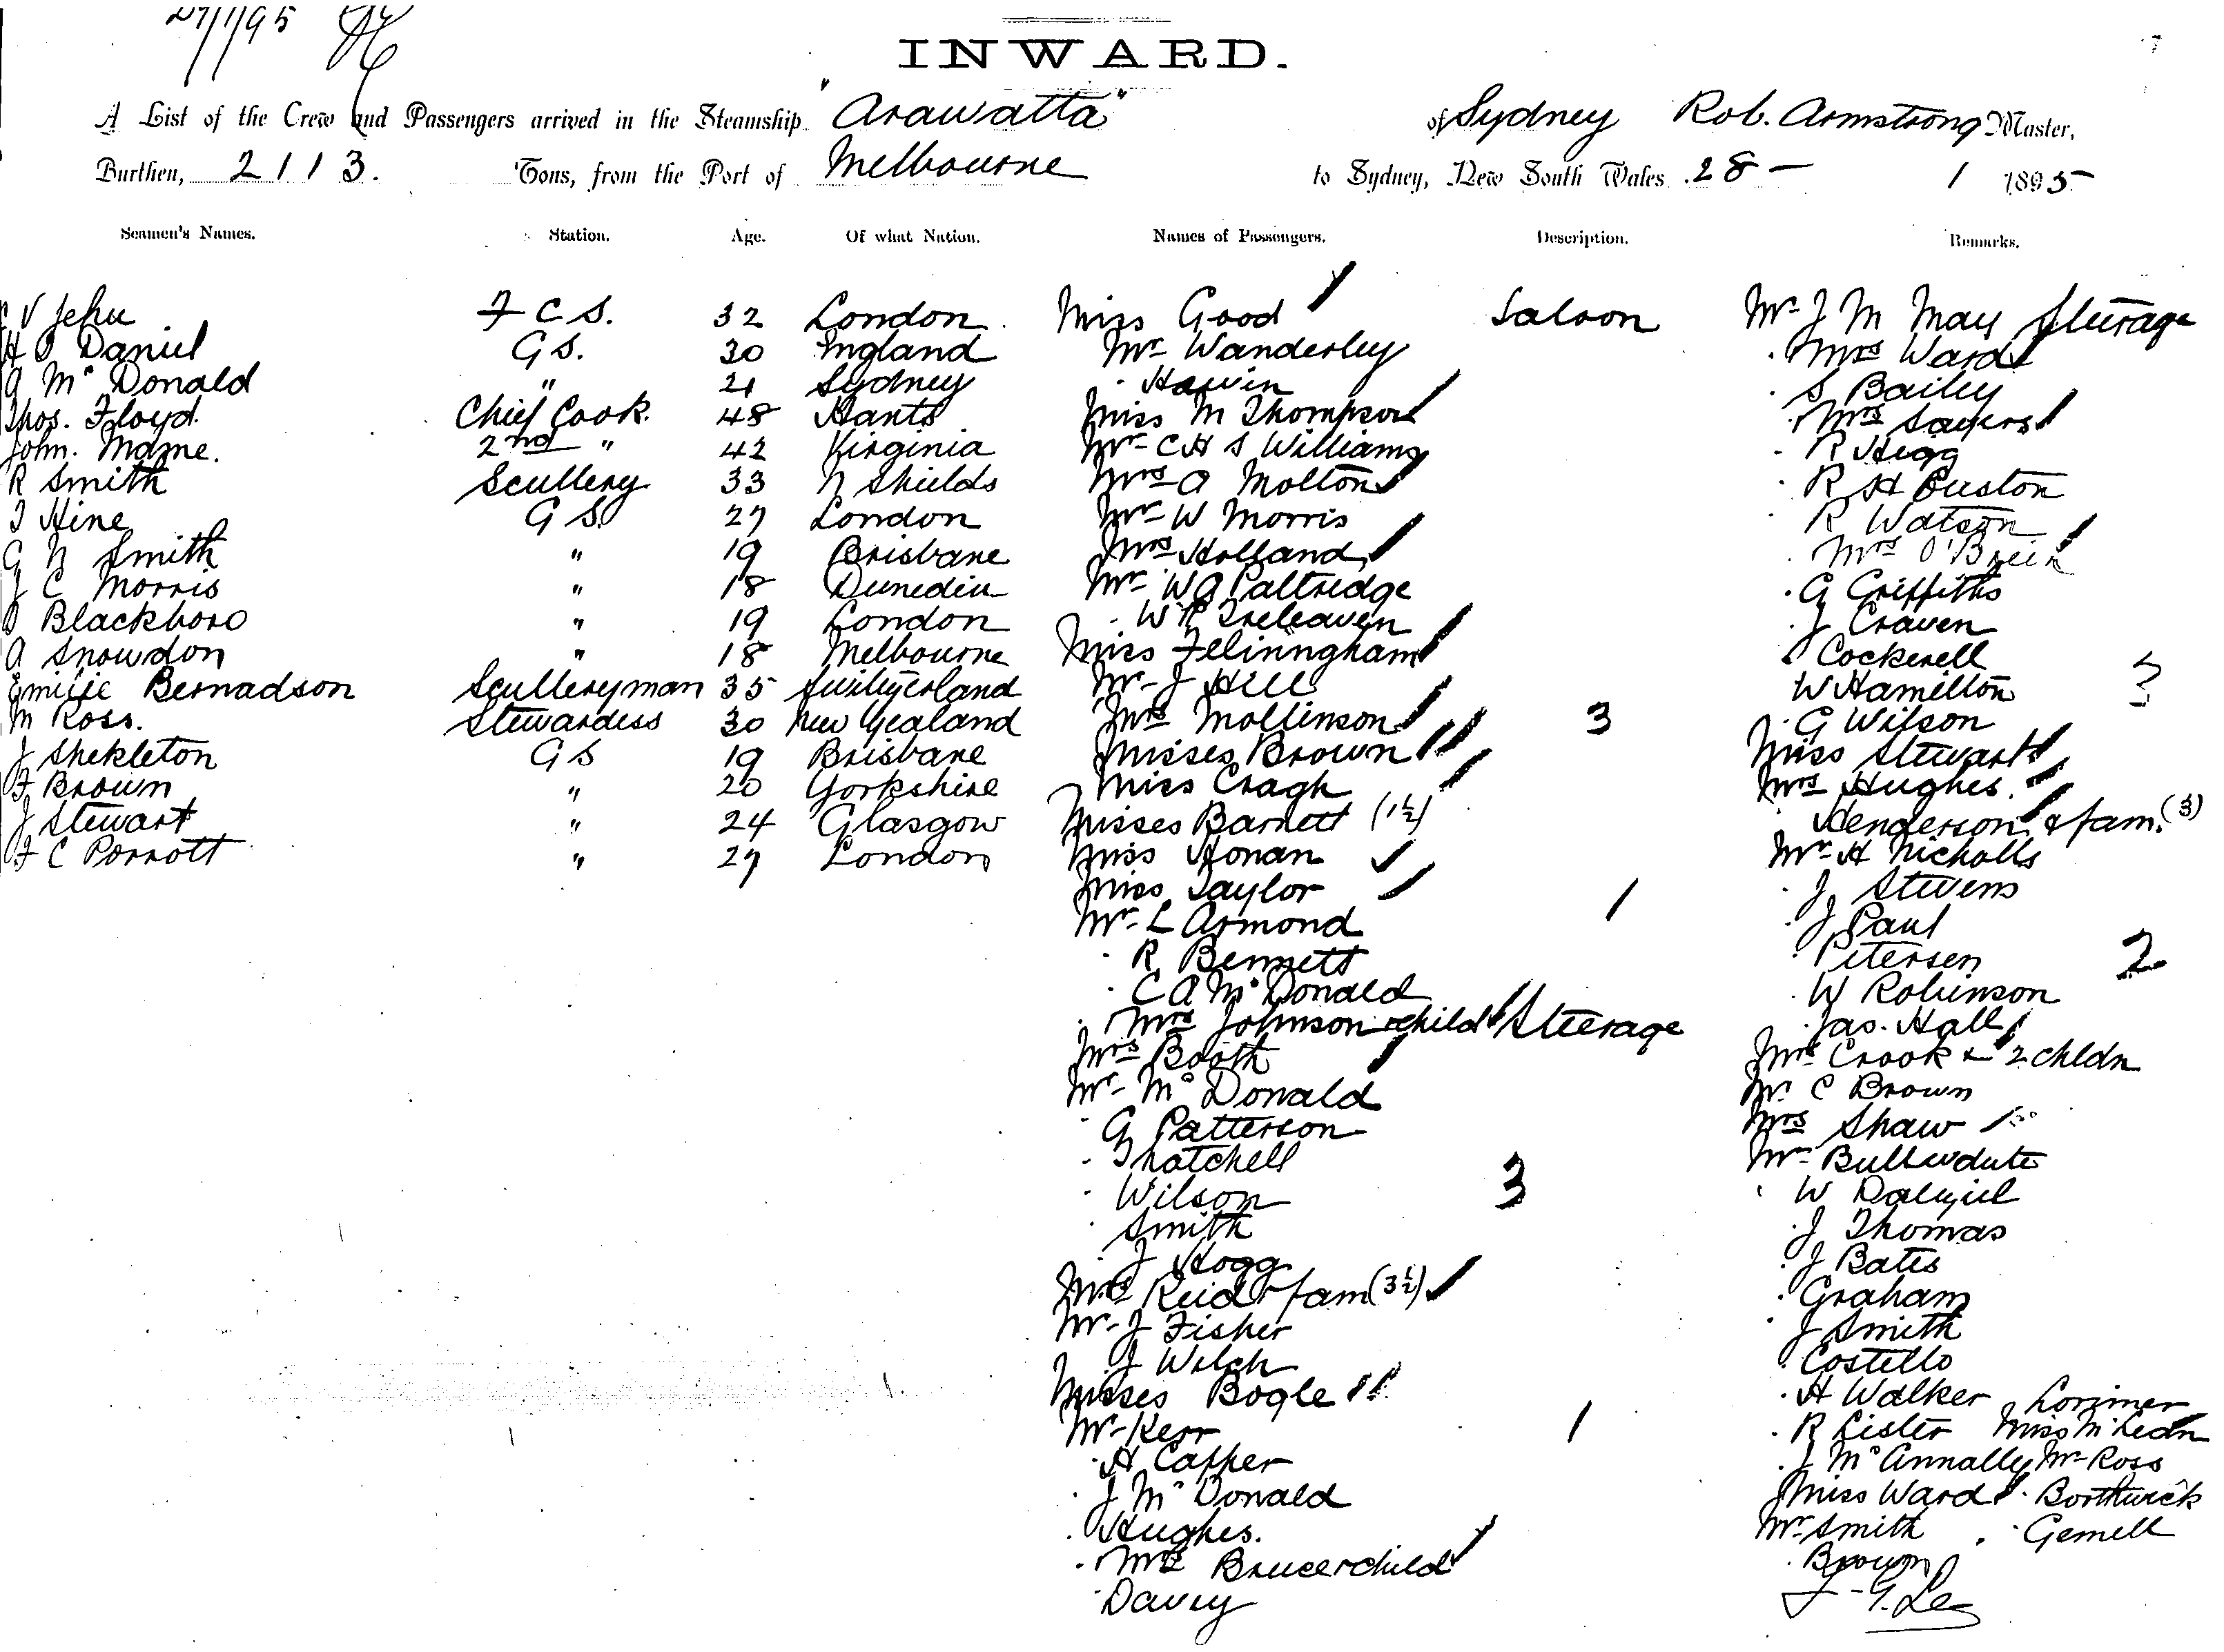 27/1/95
INWARD.
A List of the Crew and Passengers arrived in the Steamship "Arawatta" of Sydney Rob. Armstrong Master,
Burthen, 2113. Tons, from the Port of Melbourne to Sydney, New South Wales 28 - 1 1895
Seamen's Names. Station. Age. Of what Nation. Names of Passengers. Description. Remarks.
V Jehu F C S. 32 London Miss Good Saloon Mr J M May Steerage
H Daniel G S. 30 England Mr Wanderley Mrs Ward
A Mc Donald " 21 Sydney " S Bailey
Thos. Floyd. Chief Cook. 48 Hants Miss M Thompson Mrs Sayers
John. Mame. 2nd " 42 Virginia Mr C H S Williams R Higg
R Smith Scullery 33 N Shields Mrs A Molton R H Euston
Hine G S. 27 London Mr W Morris R Watson
G N Smith " 19 Brisbane Mrs Holland Mrs O'Brien
J C Morris " 18 Dunedin Mr W A Paltridge G Griffiths
Blackboro " 19 London W P Treleaven J Craven
A Snowdon " 18 Melbourne Miss Felinngham Cockerell
Emilie Bernadson Sculleryman 35 Switzerland Mr J Hill W Hamilton 3
M Ross. Stewardess 30 New Zealand Mrs Mollinson 3 G Wilson
J Shekleton G S 19 Brisbane Misses Brown Miss Stewart
F Brown " 20 Yorkshire Miss Cragh Mrs Hughes.
J Stewart " 24 Glasgow Misses Barnett (1½) Henderson & fam. (3)
F C Porrott " 27 London Miss Honan Mr H Nicholls
Miss Taylor J Stevens
Mr L Armond 1 J Paul
R Bennett Petersen 2
C A Mc Donald W Robinson
Mrs Johnson & child Steerage Jas. Hall
Mrs Booth Mrs Crook & 2 chldn
Mr Mc Donald Mr C Brown
G Patterson Mrs Shaw
Thatchell Mr
Wilson 3 W Dalziel
Smith J Thomas
J Hogg J Bates
Mrs Reid & fam (3½) Graham
Mr J Fisher J Smith
J Welch Costello
Misses Bogle H Walker Lorimer
Mr Kerr 1 R Lister Miss
H Capper J Mc Annally Mr Ross
J Mc Donald Miss Ward Borthwick
Hughes. Mr Smith Gemell
Mrs Bruce & child Brown
Davey